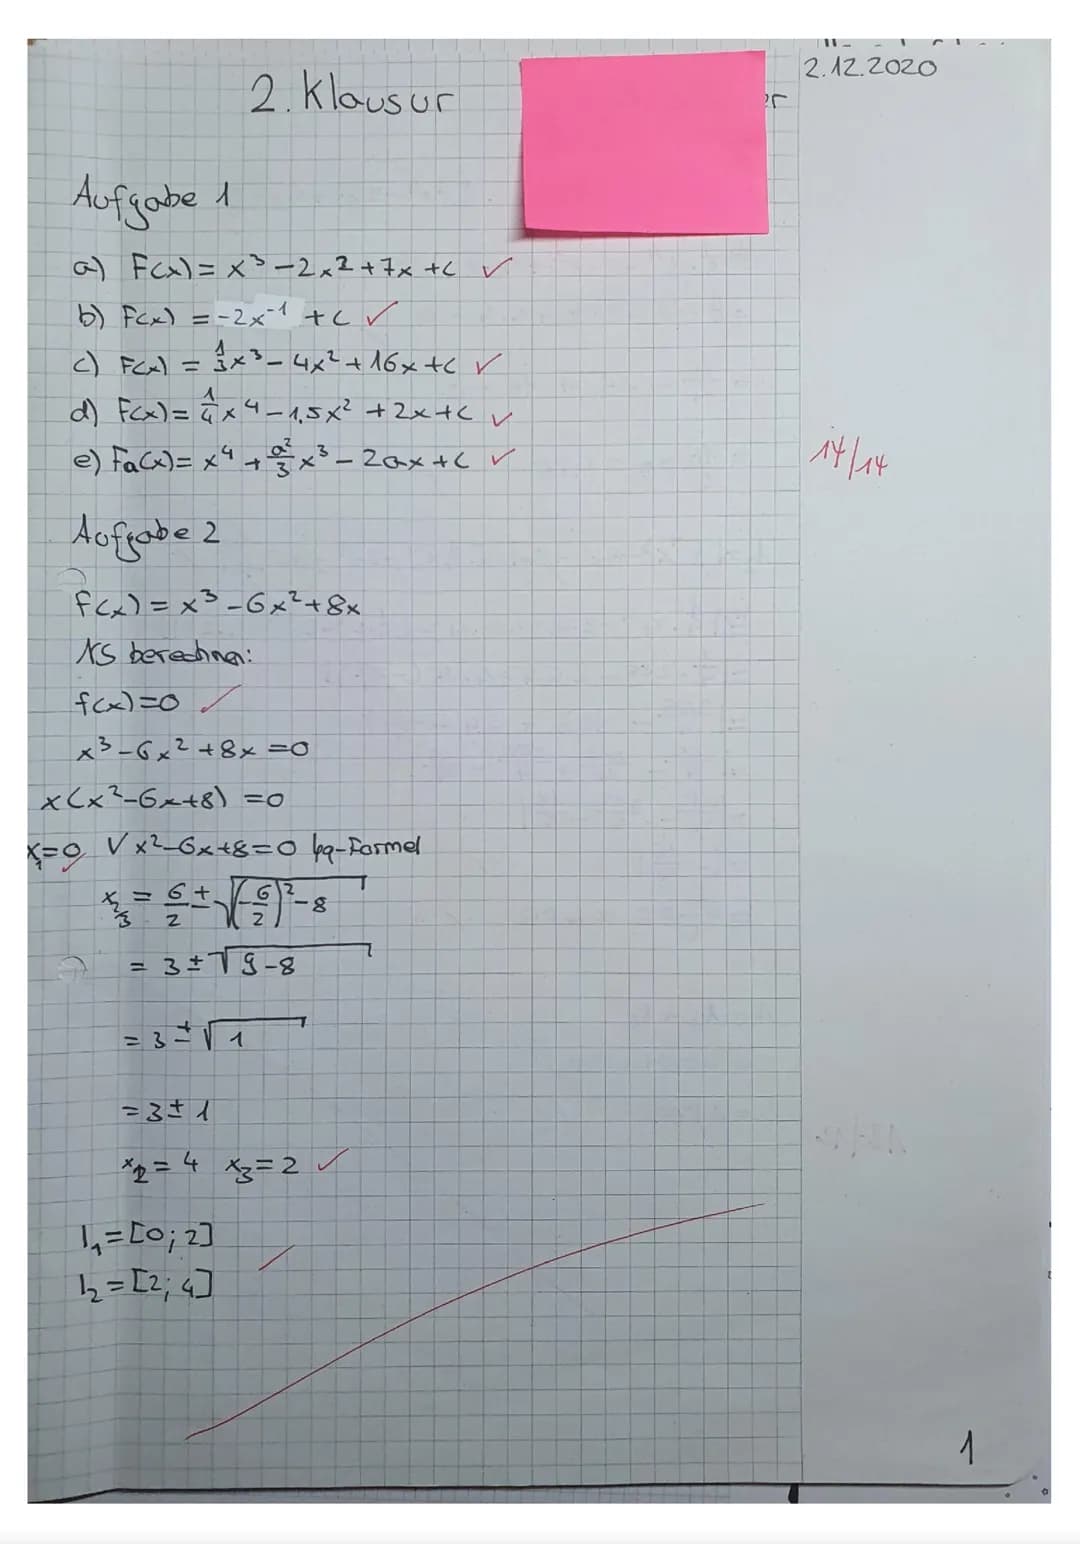 2.12.2020
2. Klausur
Aufgabe 1
a) F(x) = x³ - 2x² + 7x + c ✓
b) F(x) = -2x⁻¹ + c ✓
c) F(x) = 1/3 x³ - 4x² + 16x + c ✓
d) F(x) = 1/4 x⁴ - 1,5x² + 2x + c ✓
e) Fa(x) = x⁴ + a²/3 x³ - 2ax + c ✓
14/14
Aufgabe 2
f(x) = x³ - 6x² + 8x
NS berechnen:
f(x) = 0 ✓
x³ - 6x² + 8x = 0
x(x² - 6x + 8) = 0
x₁ = 0 ✓ V x² - 6x + 8 = 0 | pq-Formel
x₂/₃ = 6/2 ± √((-6/2)² - 8)
= 3 ± √(9 - 8)
= 3 ± √1
= 3 ± 1
x₂ = 4 x₃ = 2 ✓
I₁ = [0; 2]
I₂ = [2; 4] ✓
1